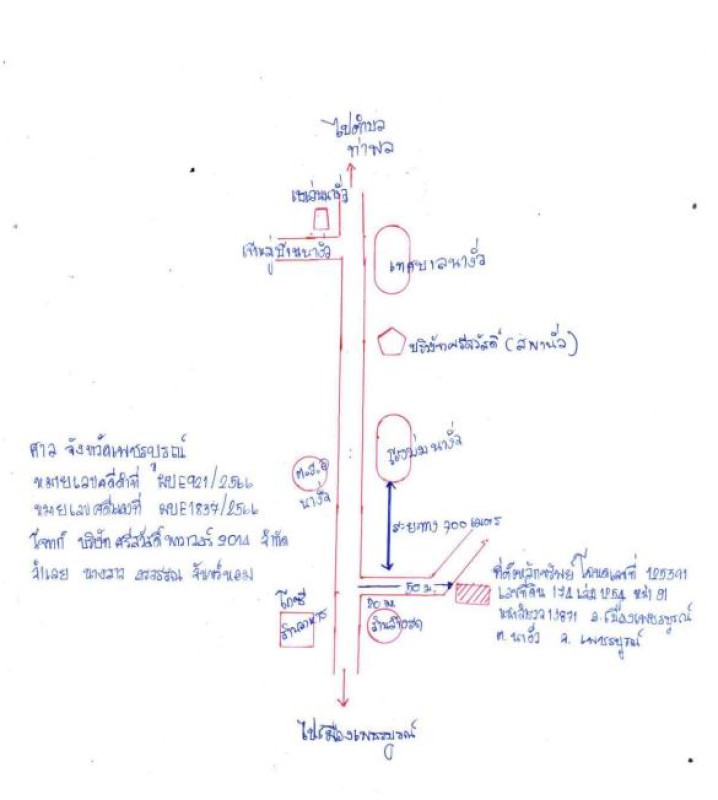 ไปตำบล
ท่าพล
เข้าหมู่บ้านนางั่ว
เทศบาลนางั่ว
บริษัทศรีสวัสดิ์ (สพานั่ว)
โรงบ่มนางั่ว
ต.ช.ด
นางั่ว
ศาล จังหวัดเพชรบูรณ์
หมายเลขคดีดำที่ ผบE921/2566
หมายเลขคดีแดงที่ ผบE1837/2566
โจทก์ บริษัท ศรีสวัสดิ์ พาวเวอร์ 2014 จำกัด
จำเลย นางสาว
ระยะทาง 700 เมตร
50 ม.
20 ม.
ร้านอาหาร
ที่ตั้งหลักทรัพย์ โฉนดเลขที่
เลขที่ดิน 134 เล่ม 1254 หน้า 91
หน้าสำรวจ 13871 อ.เมืองเพชรบูรณ์
ต. นางั่ว จ. เพชรบูรณ์
ไปเมืองเพชรบูรณ์